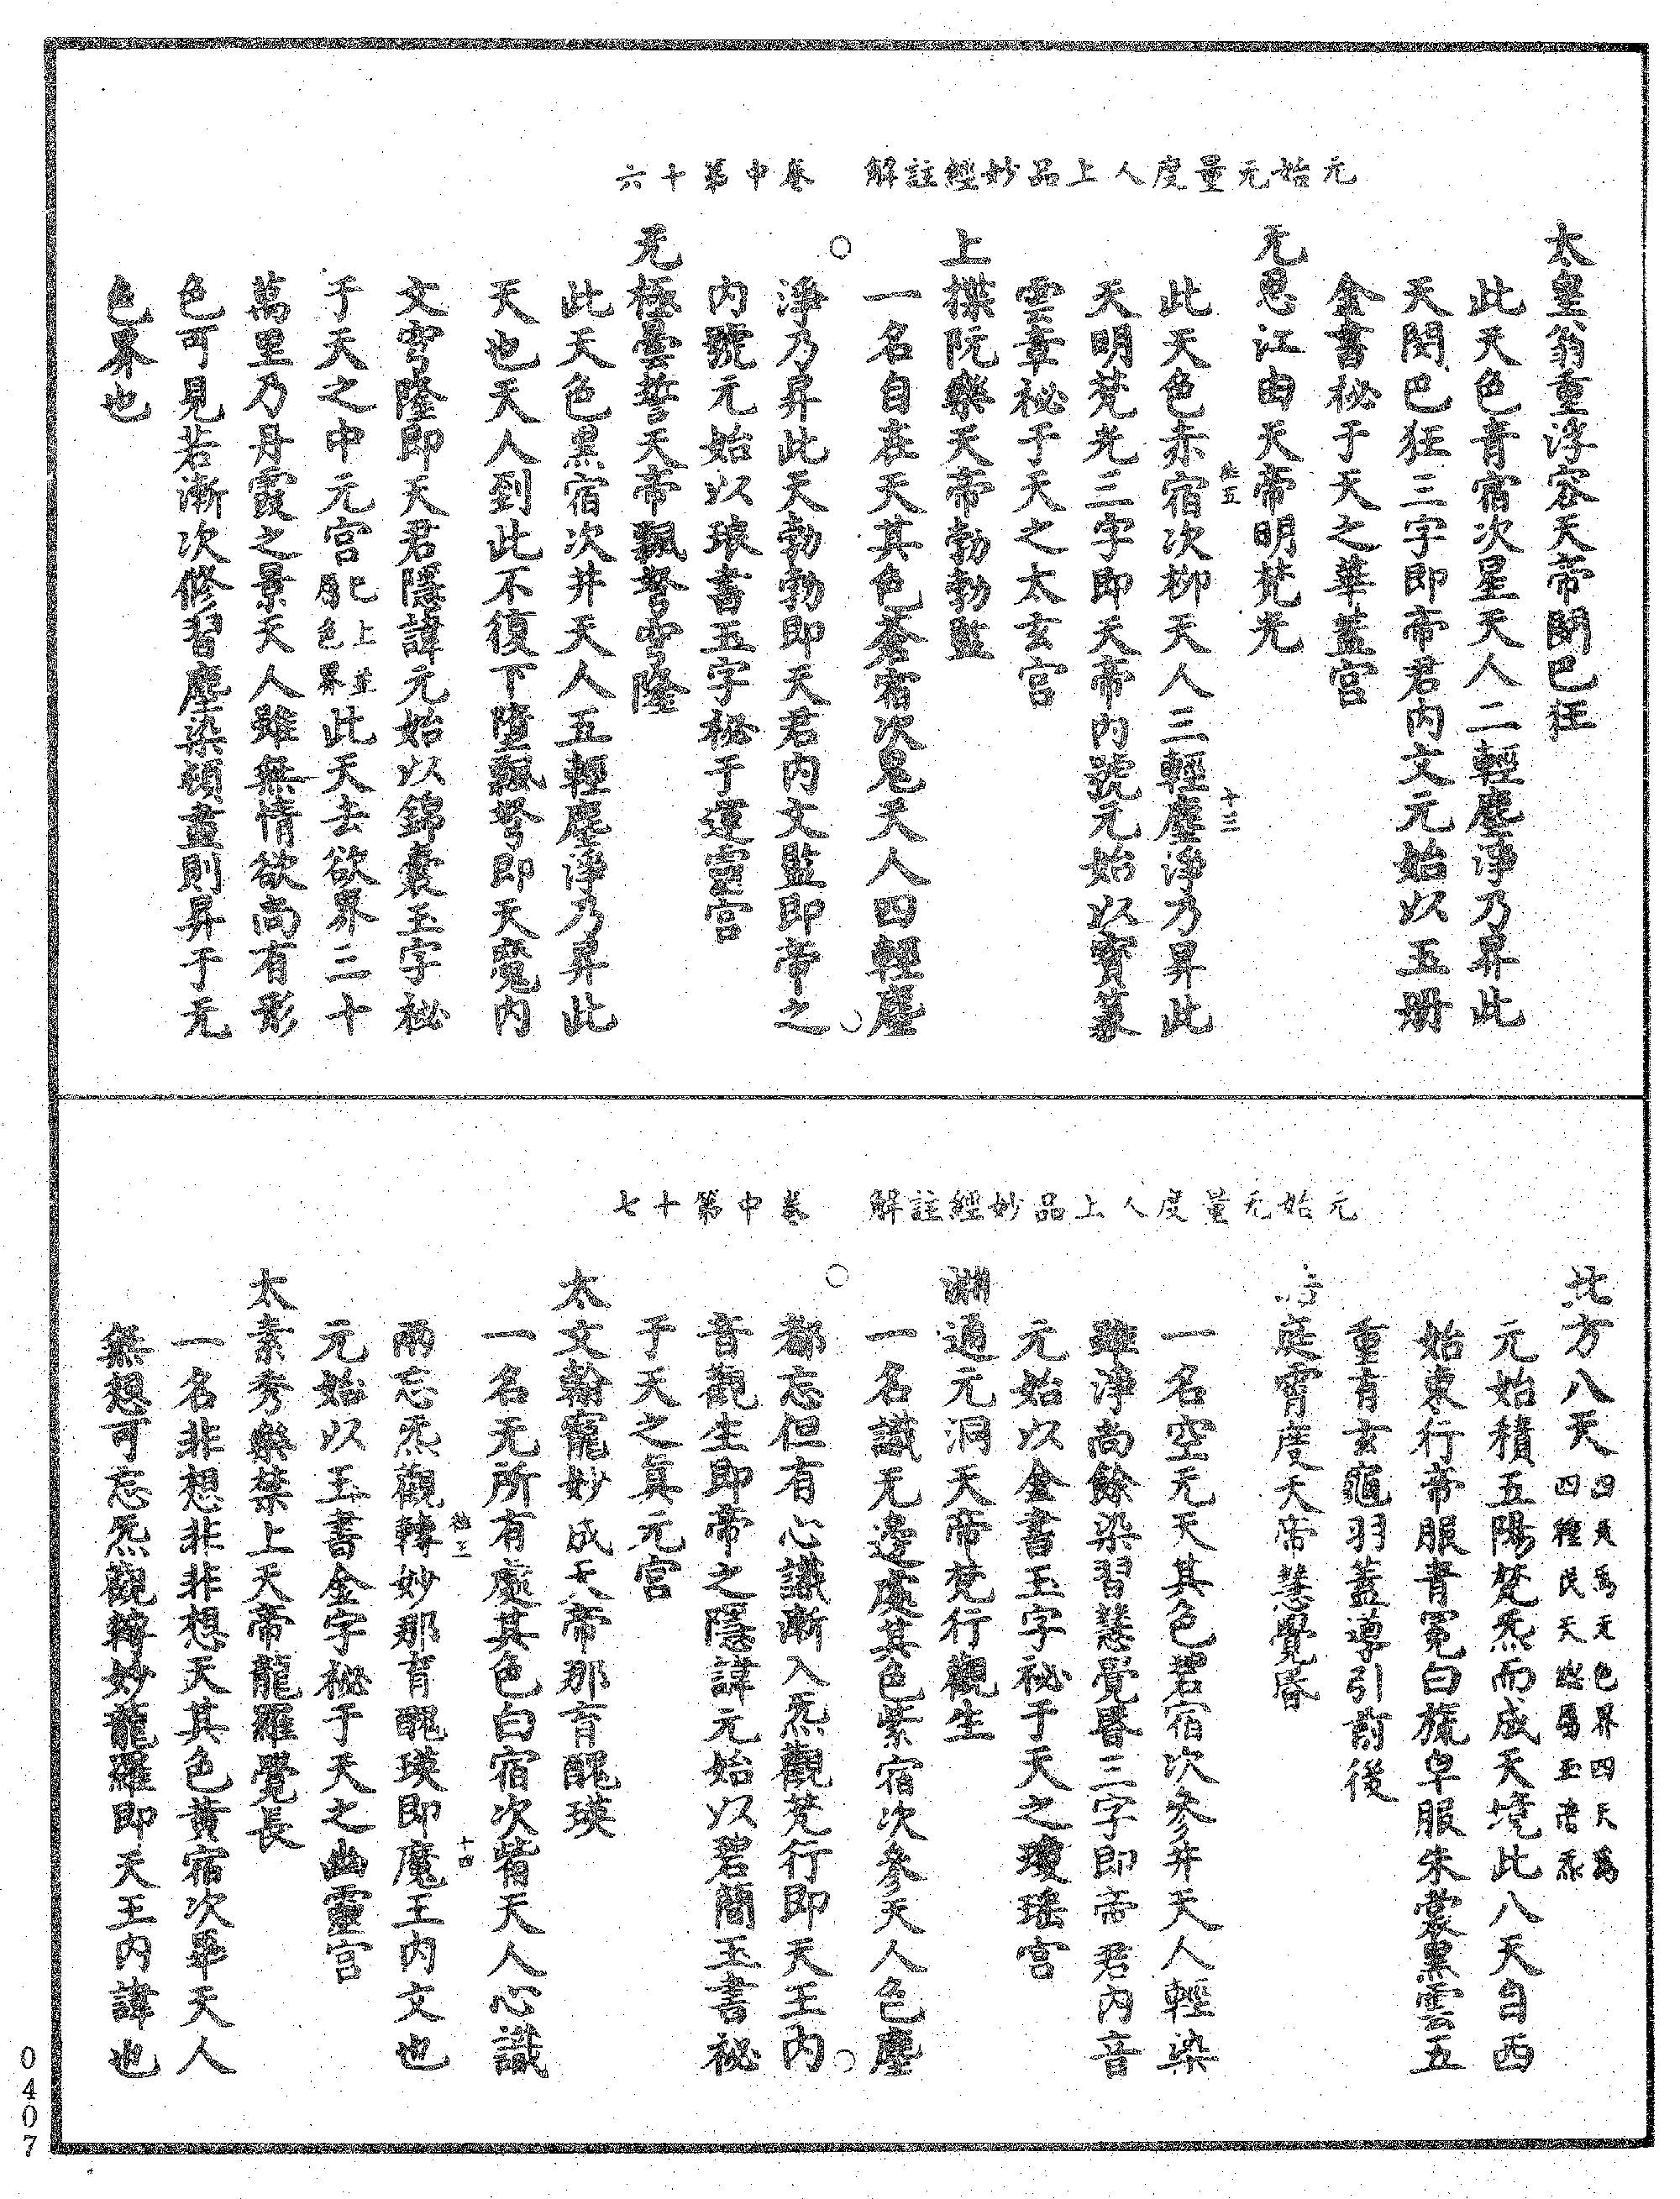 元始无量度人上品妙經註解　卷中第十六
太皇翁重浮容天帝閞巴狂
此天色青宿次星天人二輕塵淨乃昇此
天閞巴狂三字即帝君内文元始以玉册
金書秘于天之華蓋宮
无思江由天帝明梵光
此天色赤宿次柳天人三輕塵淨乃昇此
天明梵光三字即天帝内號元始以寳篆
雲章秘于天之太玄宮
上揲阮樂天帝勃勃監
一名自在天其色蒼宿次鬼天人四輕塵
淨乃昇此天勃勃即天君内文監即帝之
内號元始以琅書玉字秘于運靈宮
无極曇誓天帝飄弩穹隆
此天色黑宿次井天人五輕塵淨乃昇此
天也天人到此不復下墮飄弩即天魔内
文穹隆即天君隱諱元始以錦囊玉字秘
于天之中元宮已上並屬色界此天去欲界三十
萬里乃丹霞之景天人雖無情欲尚有形
色可見若漸次修習塵染頓盡則昇于无
色界也
元始无量度人上品妙經註解　卷中第十七
北方八天四天爲无色界四天爲四種民天總屬玉清炁
元始積五陽梵炁而成天境此八天自西
始東行帝服青冕白旒皁服朱裳黑雲五
重有玄龜羽蓋導引前後
庭霄度天帝慧覺昏
一名空无天其色碧宿次參井天人輕染
雖淨尚餘染習慧覺昏三字即帝君内音
元始以金書玉字祕于天之瓊瑤宮
淵通元洞天帝梵行觀生
一名識无邊處其色紫宿次參天人色塵
都忘但有心識漸入炁觀梵行即天王内
音觀生即帝之隱諱元始以碧簡玉書祕
于天之眞元宮
太文翰寵妙成天帝那育醜瑛
一名无所有處其色白宿次觜天人心識
兩忘炁觀轉妙那育醜瑛即魔王内文也
元始以玉書金字秘于天之幽靈宮
太素秀樂禁上天帝龍羅覺長
一名非想非非想天其色黄宿次畢天人
無想可忘炁觀轉妙龍羅即天王内諱也
0407